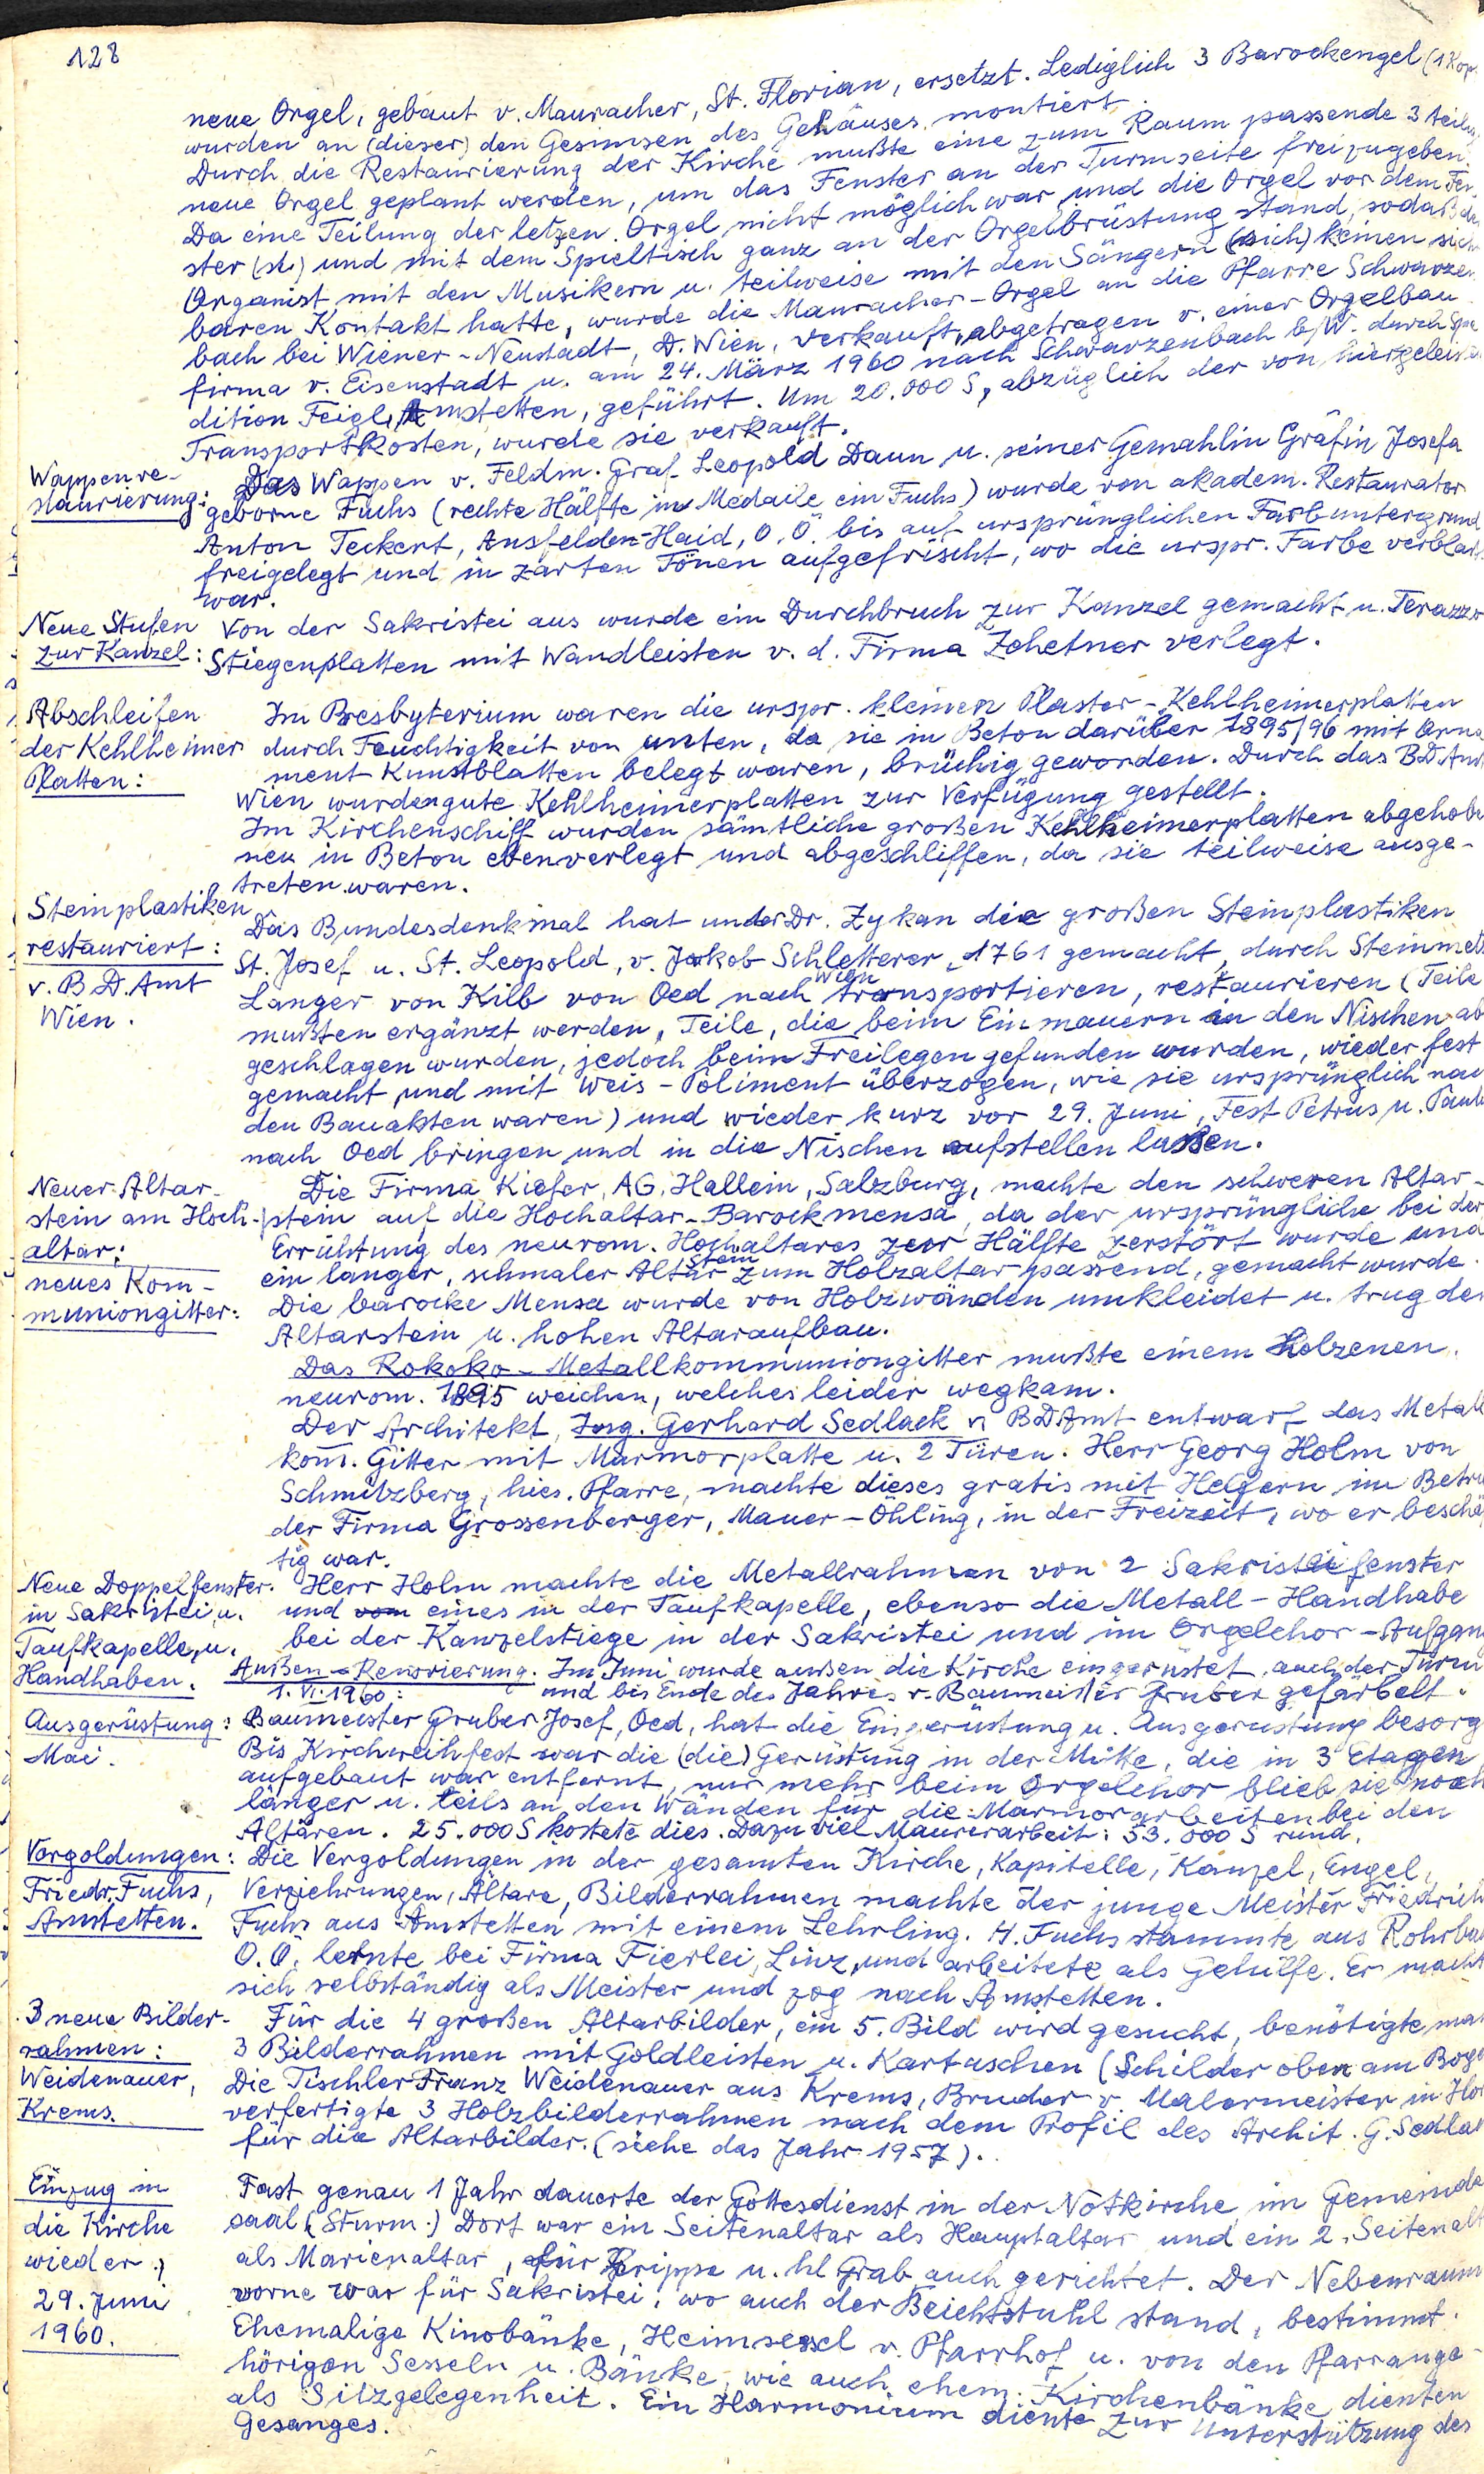 128
neue Orgel, gebaut v. Mauracher, St. Florian, ersetzt. Lediglich 3 Barockengel (1 Kop
wurden an (dieser) den Gesimsen des Gehäuses montiert.
Durch die Restaurierung der Kirche mußte eine zum Raum passende 3 teilig
neue Orgel geplant werden, um das Fenster an der Turmseite freizugeben.
Da eine Teilung der letzen Orgel nicht möglich war und die Orgel vor dem Fen-
ster (st.) und mit dem Spieltisch ganz an der Orgelbrüstung stand, sodaß de
Organist mit den Musikern u. teilweise mit den Sängern (sich) keinen sich
baren Kontakt hatte, wurde die Mauracher-Orgel an die Pfarre Schwarzen
bach bei Wiener-Neustadt, D. Wien, verkauft, abgetragen v. einer Orgelbau
firma v. Eisenstadt u. am 24. März 1960 nach Schwarzenbach b/W. durch Spe
dition Feigl, Amstetten, geführt. Um 20.000 S, abzüglich der von hier geleiste
Transportkosten, wurde sie verkauft.
Wappenre-
staurierung:
Das Wappen v. Feldm. Graf Leopold Daun u. seiner Gemahlin Gräfin Josefa
geborne Fuchs (rechte Hälfte im Medaile ein Fuchs) wurde von akadem. Restaurator
Anton Teckert, Ansfelden-Haid, O.Ö. bis auf ursprünglichen Farbuntergrund
freigelegt und in zarten Tönen aufgefrischt, wo die urspr. Farbe verblaß
war.
Neue Stufen
zur Kanzel:
Von der Sakristei aus wurde ein Durchbruch zur Kanzel gemacht u. Terazzo
Stiegenplatten mit Wandleisten v. d. Firma Zehetner verlegt.
Abschleifen
der Kehlheimer
Platten:
Im Presbyterium waren die urspr. kleinen Plaster-Kehlheimerplatten
durch Feuchtigkeit von unten, da sie in Beton darüber 1895/96 mit Orna
ment Kunstblatten belegt waren, brüchig geworden. Durch das BDAmt
Wien wurden gute Kehlheimerplatten zur Verfügung gestellt.
Im Kirchenschiff wurden sämtliche großen Kehlheimerplatten abgehobe
neu in Beton eben verlegt und abgeschliffen, da sie teilweise ausge-
treten waren.
Steinplastiken
restauriert:
v. B.D. Amt
Wien.
Das Bundesdenkmal hat under Dr. Zykan die großen Steinplastiken
St. Josef u. St. Leopold, v. Jakob Schletterer, 1761 gemacht, durch Steinmetz
Langer von Kilb von Oed nach Wien transportieren, restaurieren (Teile
mußten ergänzt werden, Teile, die beim Einmauern in den Nischen ab
geschlagen wurden, jedoch beim Freilegen gefunden wurden, wieder fest
gemacht und mit Weis-Poliment überzogen, wie sie ursprünglich nac
den Bauakten waren) und wieder kurz vor 29. Juni, Fest Petrus u. Paulu
nach Oed bringen und in die Nischen aufstellen laßen.
Neuer Altar-
stein am Hoch-
altar:
neues Kom-
muniongitter:
Die Firma Kiefer, AG. Hallein, Salzburg, machte den schweren Altar-
stein auf die Hochaltar-Barockmensa, da der ursprüngliche bei der
Errichtung des neurom. Hochaltares zur Hälfte zerstört wurde und
ein langer, schmaler Altarstein zum Holzaltar passend, gemacht wurde.
Die barocke Mensa wurde von Holzwänden umkleidet u. trug den
Altarstein u. hohen Altaraufbau.
Das Rokoko-Metallkommuniongitter mußte einem Holzenen,
neurom. 1895 weichen, welches leider wegkam.
Der Architekt, Ing. Gerhard Sedlack v. BDAmt entwarf das Metall
kom̄. Gitter mit Marmorplatte u. 2 Türen. Herr Georg Holm von
Schmitzberg, hies. Pfarre, machte dieses gratis mit Helfern im Betrie
der Firma Grossenberger, Mauer-Öhling, in der Freizeit, wo er beschäf
tig war.
Neue Doppelfenster
in Sakristei u.
Taufkapelle, u.
Handhaben.
Herr Holm machte die Metallrahmen von 2 Sakristeifenster
und vom eines in der Taufkapelle, ebenso die Metall-Handhabe
bei der Kanzelstiege in der Sakristei und im Orgelchor-Aufgang
Außen-Renovierung. Im Juni wurde außen die Kirche eingerüstet, auch der Turm
1. VI. 1960: und bis Ende des Jahres v. Baumeister Gruber gefärbelt.
Ausgerüstung:
Mai.
Baumeister Gruber Josef, Oed, hat die Eingerüstung u. Ausgerüstung besorg
Bis Kirchweihfest war die (die) Gerüstung in der Mitte, die in 3 Etagen
aufgebaut war entfernt, nur mehr beim Orgelchor blieb sie noch
länger u. teils an den Wänden für die Marmorarbeiten bei den
Altären. 25.000 S kostete dies. Dazu viel Maurerarbeit: 53.000 S rund.
Vergoldungen:
Friedr. Fuchs,
Amstetten.
Die Vergoldungen in der gesamten Kirche, Kapitelle, Kanzel, Engel,
Verziehrungen, Altäre, Bilderrahmen machte der junge Meister Friedrich
Fuchs aus Amstetten mit einem Lehrling. H. Fuchs stammte aus Rohrba
O.Ö. lernte bei Firma Fierlei, Linz, und arbeitete als Gehilfe. Er macht
sich selbständig als Meister und zog nach Amstetten.
3 neue Bilder-
rahmen:
Weidenauer,
Krems.
Für die 4 großen Altarbilder, ein 5. Bild wird gesucht, benötigte man
3 Bilderrahmen mit Goldleisten u. Kartuschen (Schilder oben am Boge
Die Tischler Franz Weidenauer aus Krems, Bruder v. Malermeister in Hor
verfertigte 3 Holzbilderrahmen nach dem Profil des Archit. G. Sedlak
für die Altarbilder. (siehe das Jahr 1957).
Einzug in
die Kirche
wieder:
29. Juni
1960.
Fast genau 1 Jahr dauerte der Gottesdienst in der Notkirche im Gemeinde
saal (Sturm.) Dort war ein Seitenaltar als Hauptaltar und ein 2. Seitenalt
als Marienaltar, für Krippe u. hl Grab auch gerichtet. Der Nebenraum
vorne war für Sakristei, wo auch der Beichtstuhl stand, bestimmt.
Ehemalige Kinobänke, Heimsessel v. Pfarrhof u. von den Pfarrange-
hörigen Sesseln u. Bänke, wie auch ehem. Kirchenbänke dienten
als Sitzgelegenheit. Ein Harmonium diente zur Unterstützung des
Gesanges.